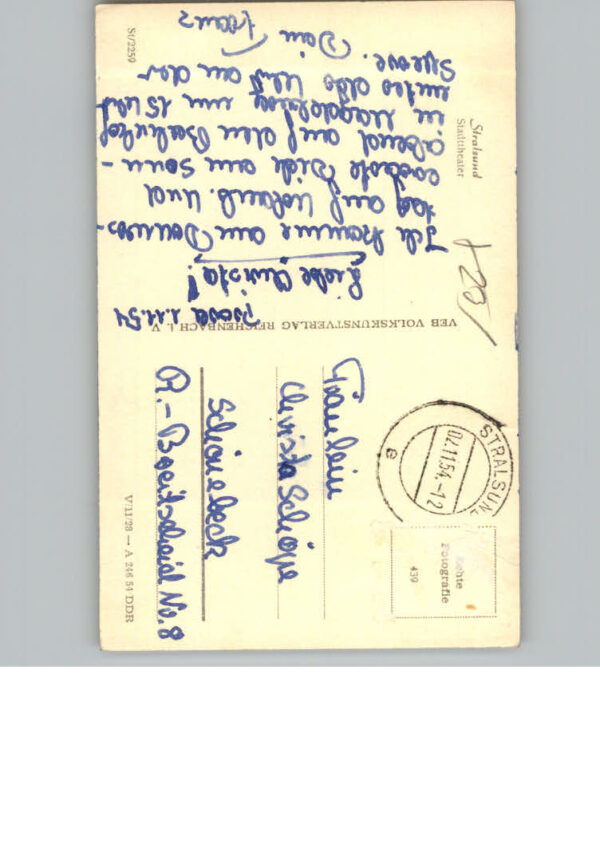 St/2259
Stralsund
Stadttheater
Prora 1.11.54
Liebe Christa!
Ich komme am Donners-
tag auf Urlaub. Und
erwarte Dich am Sonn-
abend auf dem Bahnhof
in Magdeburg um 15 Uhr
also an der
Sperre. Dein
Franz
VEB VOLKSKUNSTVERLAG REICHENBACH i. V.
STRALSUND
02.11.54.-12
e
Echte
Fotografie
439
Fräulein
Christa Schöpe
Schönebeck
R.-Breitscheid No. 8
V/11/28 — A 246 54 DDR